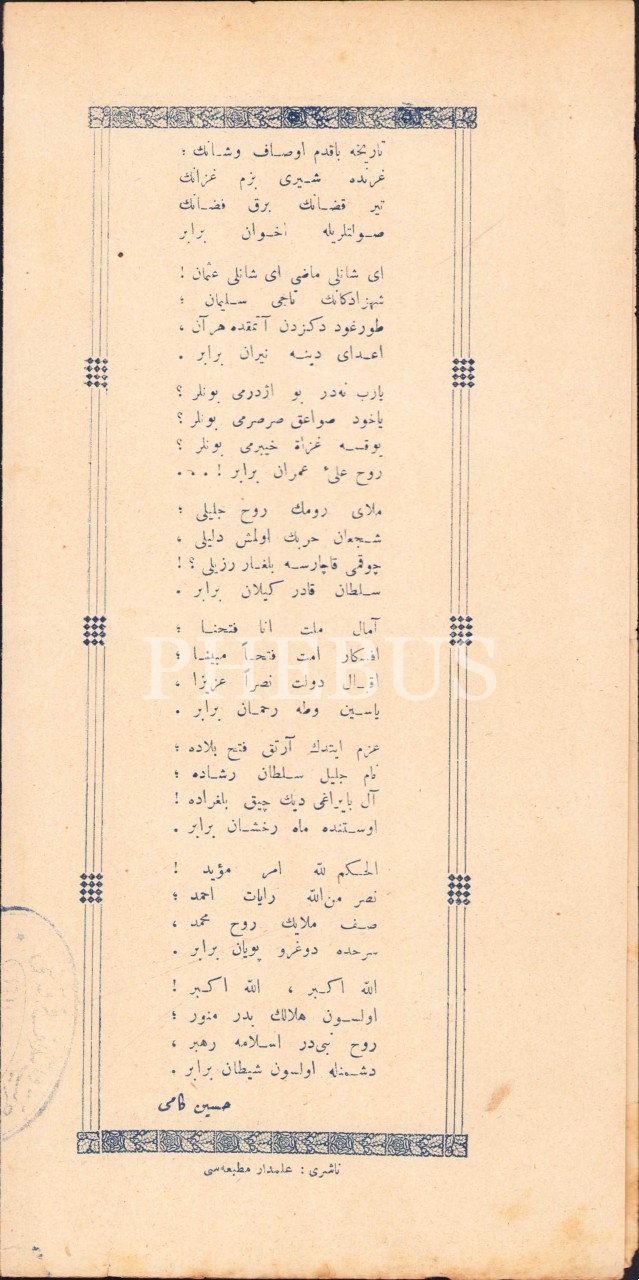 تاریخه باقدم اوصاف وشانك ؛
غرنده شیری بزم غزانك
تیر قضانك برق فضانك
صولتلریله اخوان برابر
ای شانلی ماضی ای شانلی عثمان !
شهزادكانك تاجی سلیمان ؛
طورغود دكزدن آتمقده هرآن ،
اعدای دینه نیران برابر .
یارب نه‌در بو اژدرمی بونلر ؟
یاخود صواعق صرصرمی بونلر ؟
یوقسه غزاة خیبرمی بونلر ؟
روح علیٔ عمران برابر ! . . .
ملای رومك روح جلیلی ؛
شجعان حربك اولمش دلیلی ،
چوقمی قاچارسه بلغار رزیلی ؟ !
سلطان قادر كیلان برابر .
آمال ملت انا فتحنا ؛
افكار امت فتحاً مبینا ؛
اقبال دولت نصراً عزیزا ،
یاسین وطه رحمان برابر .
عزم ایتدك آرتق فتح بلاده ؛
نام جلیل سلطان رشاده ؛
آل بایراغی دیك چیق بلغراده !
اوستنده ماه رخشان برابر .
الحكم لله امر مؤید !
نصر من‌الله رایات احمد ؛
صف ملایك روح محمد ،
سرحده دوغرو پویان برابر .
الله اكبر ، الله اكبر !
اولسون هلالك بدر منور ؛
روح نبی‌در اسلامه رهبر ،
دشمنله اولسون شیطان برابر .
حسین كامی
ناشری : علمدار مطبعه‌سی
PHEBUS